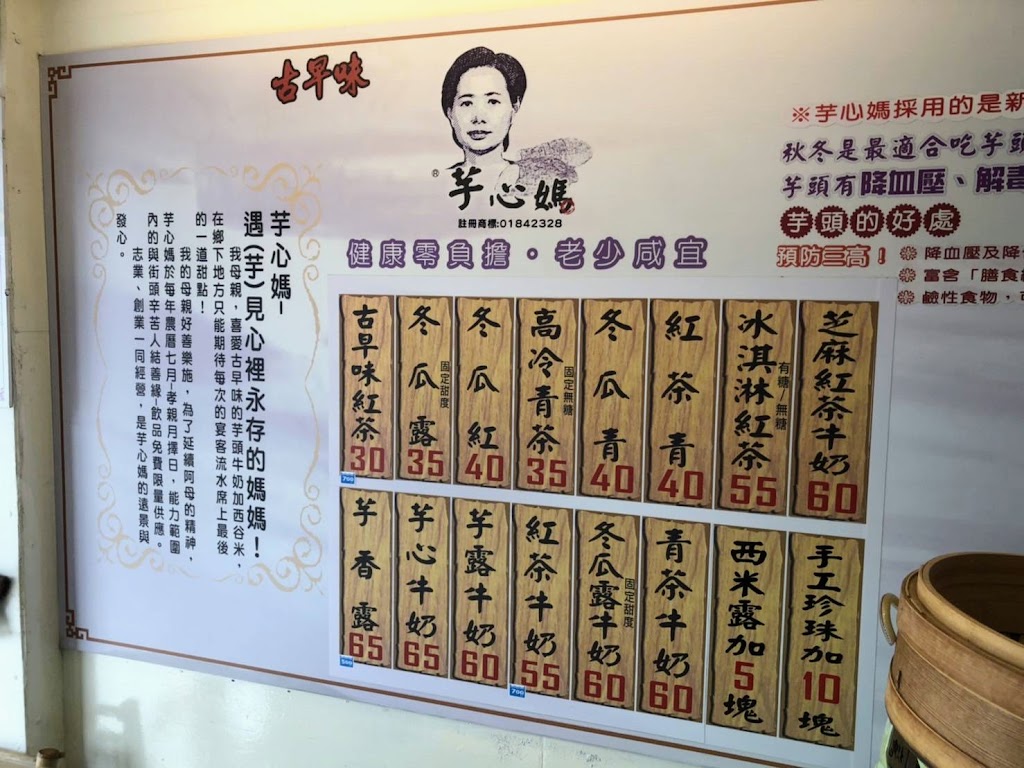 古早味
® 芋心媽
註冊商標:01842328
健康零負擔・老少咸宜
芋心媽-
遇(芋)見心裡永存的媽媽！
我母親，喜愛古早味的芋頭牛奶加西谷米，
在鄉下地方只能期待每次的宴客流水席上最後
的一道甜點！
我的母親好善樂施，為了延續阿母的精神，
芋心媽於每年農曆七月-孝親月擇日，能力範圍
內的與街頭辛苦人結善緣-飲品免費限量供應。
志業、創業一同經營，是芋心媽的遠景與
發心。
※芋心媽採用的是新
秋冬是最適合吃芋頭
芋頭有降血壓、解毒
芋頭的好處
預防三高！
※降血壓及降
※富含「膳食
※鹼性食物，可
古早味紅茶30
700
冬瓜露35
固定甜度
冬瓜紅40
高冷青茶35
固定無糖
冬瓜青40
紅茶青40
冰淇淋紅茶55
有糖/無糖
芝麻紅茶牛奶60
芋香露65
500
芋心牛奶65
芋露牛奶60
紅茶牛奶55
700
冬瓜露牛奶60
固定甜度
青茶牛奶60
西米露加5塊
手工珍珠加10塊